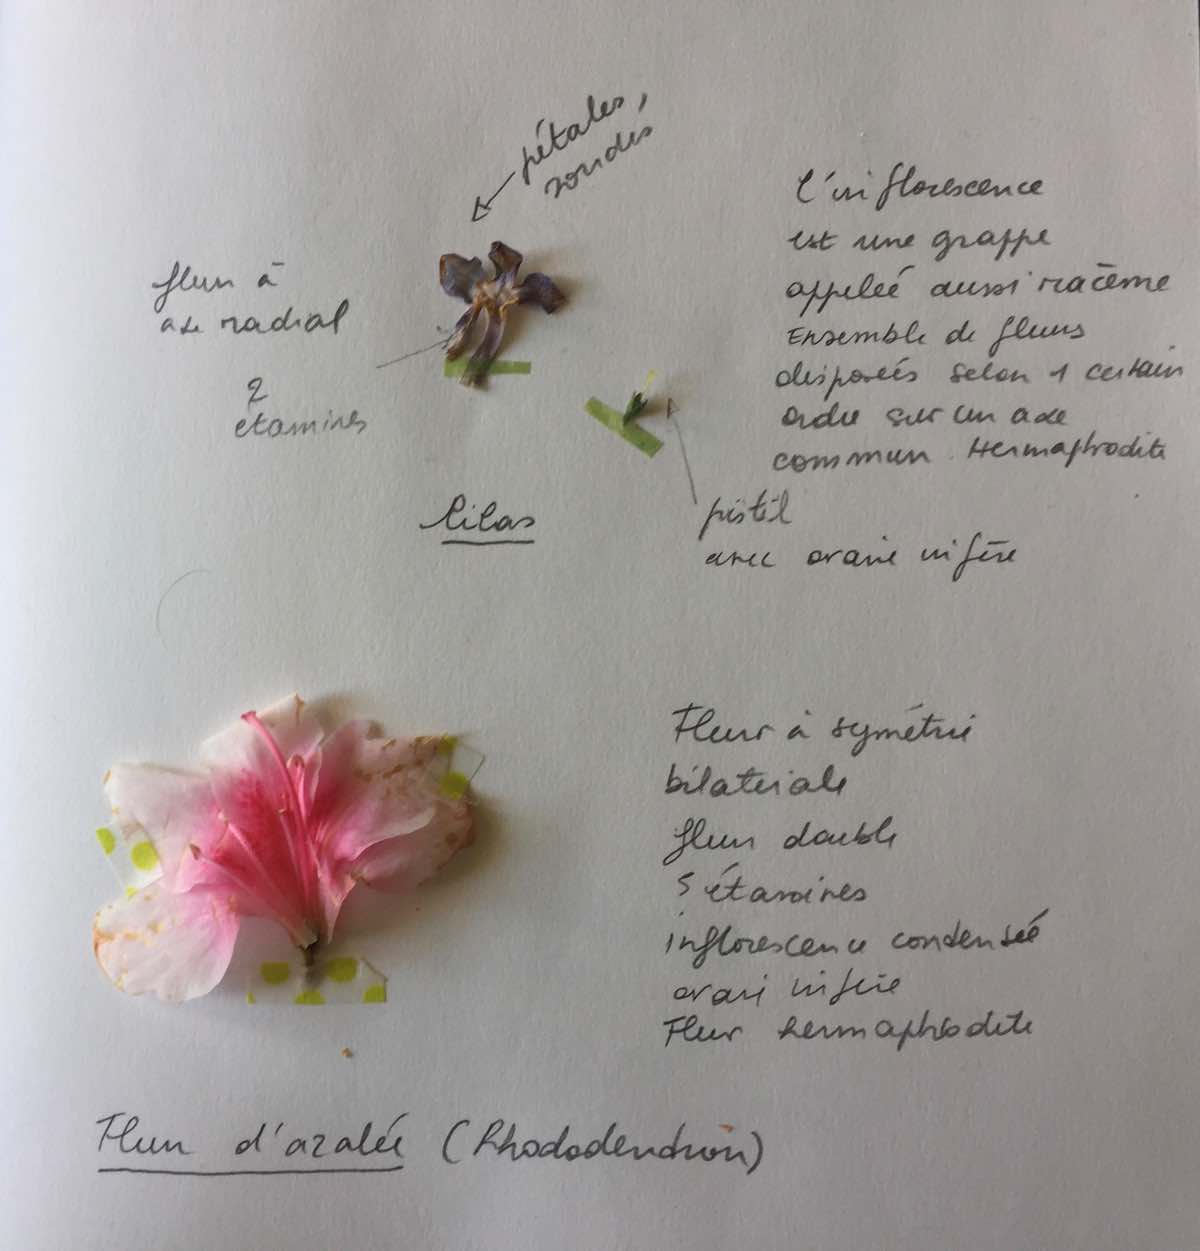 pétales,
rondes
fleur à
axe radial
2
étamines
l'inflorescence
est une grappe
appelée aussi racème
Ensemble de fleurs
disposées selon 1 certain
ordre sur un axe
commun. Hermaphrodite
pistil
avec ovaire infère
lilas
Fleur à symétrie
bilatérale
fleur double
5 étamines
inflorescence condensée
ovaire infère
Fleur hermaphrodite
Fleur d'azalée (Rhododendron)